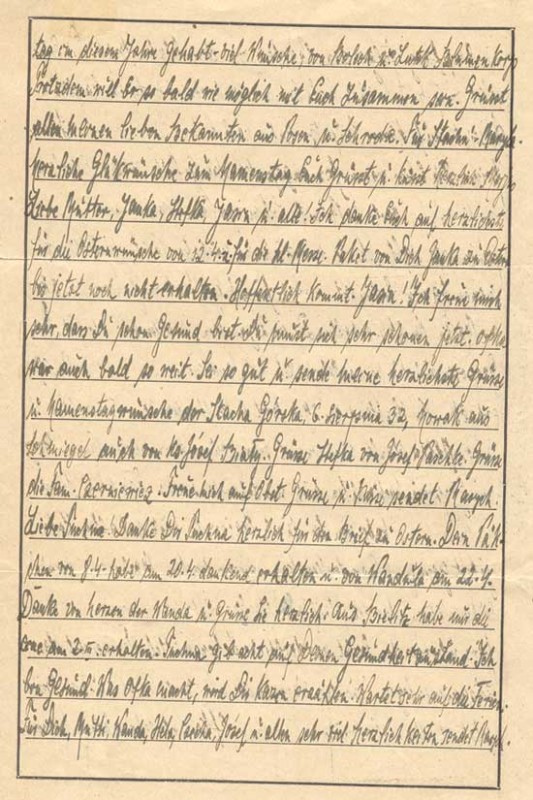 tag in diesem Jahre gehabt. viel Wünsche von Bolech u. Lutek
Trotzdem will Er so bald wie möglich mit Euch zusammen sein. Grüsst
allen meinen lieben Bekannten aus Posen u. Schroda. Für Stasiu
herzliche Glükwünsche zum Namenstag. Euch Grüsst u. küsst herzlich
Liebe Mutter, Janka, Stefka, Jasiu u. alle! Ich danke Euch auf herzlichste
für die Osternwünsche von 12.4. u. für die hl. Messe. Paket von Dich Janka
bis jetzt noch nicht erhalten. Hoffentlich kommt. Jasiu! Ich freue mich
sehr, dass Du schon Gesund bist. Du musst sich sehr schonen jetzt. Ofka
war auch bald so weit. Sei so gut u. sende meine herzlichste Grüsse
u. Namenstagwünsche der Stacha Górska, 6. Sierpnia 32, Nowak aus
Schmiegel auch von Ks. Józef. Grüsse Stefka von Józef Paschke. Grüsse
die Fam. Czerniewicz. Freue mich auf Obst. Grüsse u. Küsse sendet
Liebe Suchna. Danke Dir Suchna herzlich für den Brief zu Ostern. Dein Päk-
chen von 8.4. habe am 20.4. dankend erhalten u. von Wandula am 22.4.
Danke von herzen der Wanda u. Grüsse Sie herzlich. Aus Bielitz habe
am 2. erhalten. Suchna gib acht auf Deinen Gesundheitzustand. Ich
bin Gesund. Was Ofka macht, wird Dir erzählen. Wartet sehr auf die Ferien.
Für Dich, Mutti, Wanda, Hela, Józef u. allen sehr viel herzlichkeiten sendet